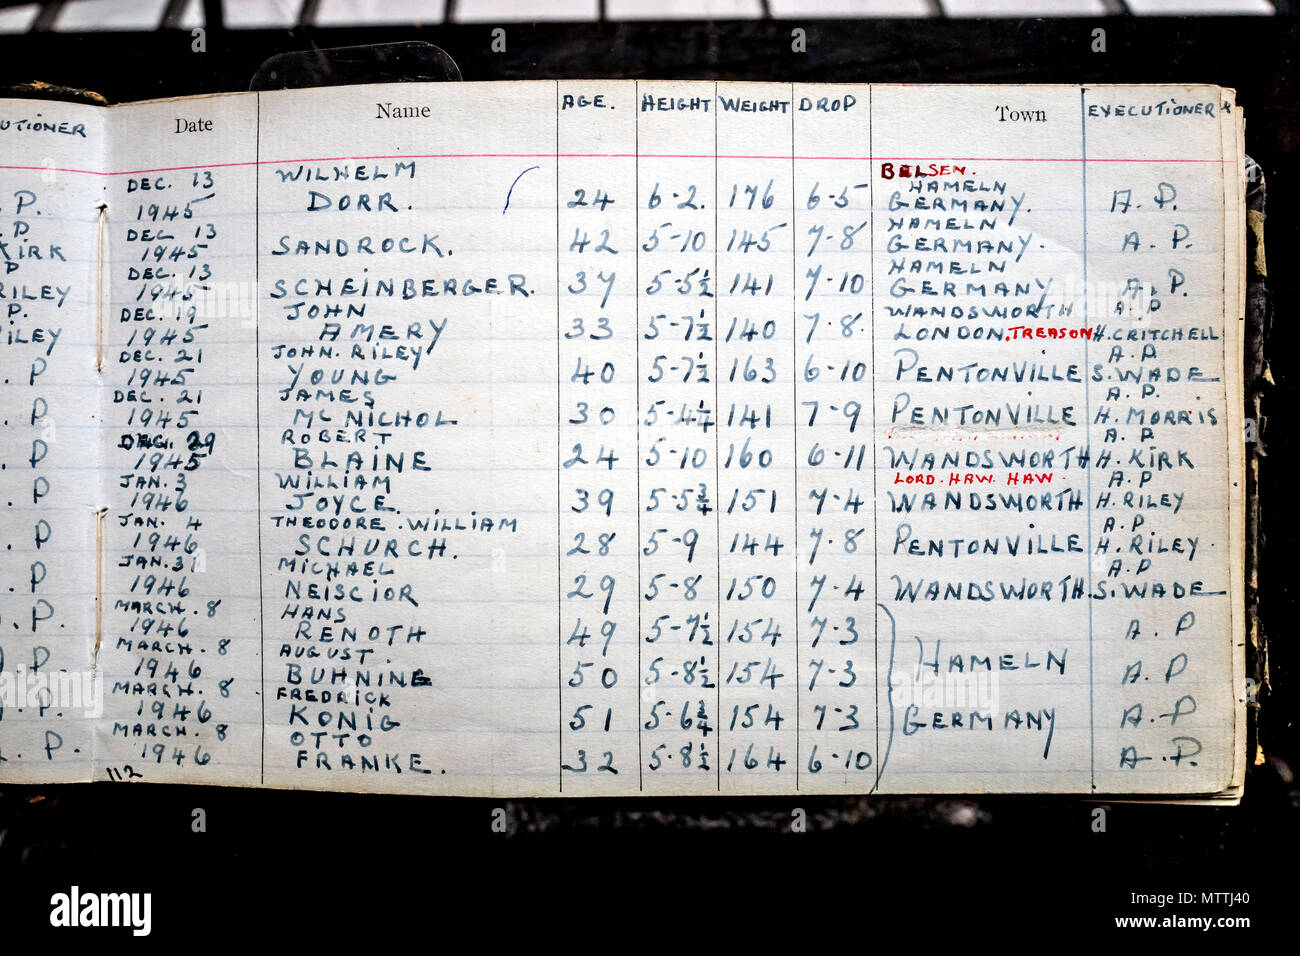 UTIONER Date Name AGE. HEIGHT WEIGHT DROP Town EXECUTIONER
. P. DEC. 13 1945 WILHELM DORR. 24 6-2. 176 6-5 BELSEN. HAMELN GERMANY. A. P.
P KIRK DEC 13 1945 SANDROCK. 42 5-10 145 7-8 HAMELN GERMANY. A. P.
P RILEY DEC. 13 1945 SCHEINBERGER. 37 5-5½ 141 7-10 HAMELN GERMANY A. P.
P. ILEY DEC. 19 1945 JOHN AMERY 33 5-7½ 140 7-8. WANDSWORTH LONDON. TREASON A. P H. CRITCHELL
. P DEC. 21 1945 JOHN. RILEY YOUNG 40 5-7½ 163 6-10 PENTONVILLE A. P S. WADE
. P DEC. 21 1945 JAMES MC NICHOL 30 5-4¼ 141 7-9 PENTONVILLE A. P. H. MORRIS
. P DEC. 29 1945 ROBERT BLAINE 24 5-10 160 6-11 WANDSWORTH A. P. H. KIRK
. P JAN. 3 1946 WILLIAM JOYCE. 39 5-5¾ 151 7-4 LORD. HAW. HAW. WANDSWORTH A. P H. RILEY
. P JAN. 4 1946 THEODORE. WILLIAM SCHURCH. 28 5-9 144 7-8 PENTONVILLE A. P. H. RILEY
. P JAN. 31 1946 MICHAEL NEISCIOR 29 5-8 150 7-4 WANDSWORTH. A. P S. WADE
. P. MARCH. 8 1946 HANS RENOTH 49 5-7½ 154 7-3 A. P
. P. MARCH. 8 1946 AUGUST BUHNING 50 5-8½ 154 7-3 HAMELN A. P
. P. MARCH. 8 1946 FREDRICK KONIG 51 5-6¾ 154 7-3 GERMANY A-P
. P. MARCH. 8 1946 OTTO FRANKE. 32 5-8½ 164 6-10 A-P.
112
alamy
Image ID: MTTJ40
www.alamy.com